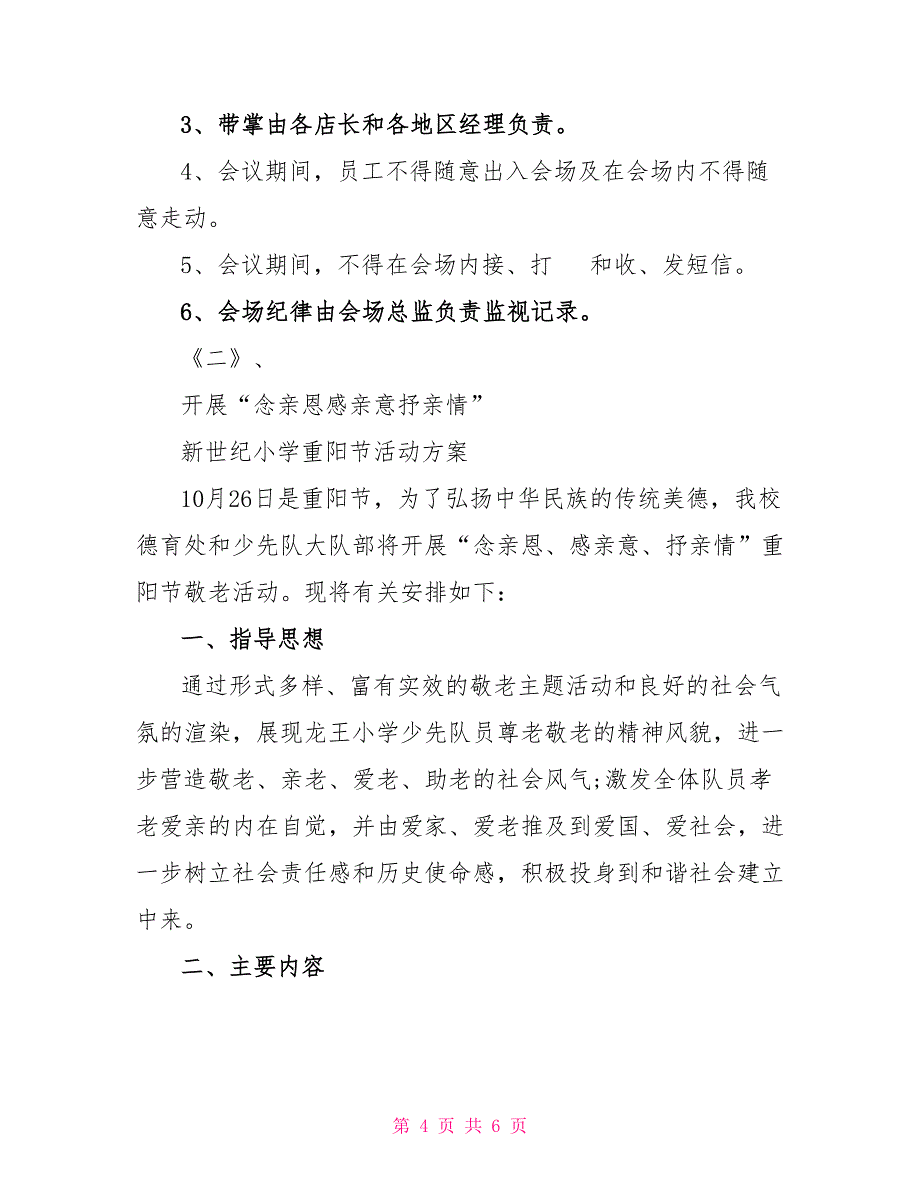 3、带掌由各店长和各地区经理负责。
4、会议期间，员工不得随意出入会场及在会场内不得随
意走动。
5、会议期间，不得在会场内接、打 和收、发短信。
6、会场纪律由会场总监负责监视记录。
《二》、
开展“念亲恩感亲意抒亲情”
新世纪小学重阳节活动方案
10月26日是重阳节，为了弘扬中华民族的传统美德，我校
德育处和少先队大队部将开展“念亲恩、感亲意、抒亲情”重
阳节敬老活动。现将有关安排如下：
一、指导思想
通过形式多样、富有实效的敬老主题活动和良好的社会气
氛的渲染，展现龙王小学少先队员尊老敬老的精神风貌，进一
步营造敬老、亲老、爱老、助老的社会风气;激发全体队员孝
老爱亲的内在自觉，并由爱家、爱老推及到爱国、爱社会，进
一步树立社会责任感和历史使命感，积极投身到和谐社会建立
中来。
二、主要内容
第 4 页 共 6 页